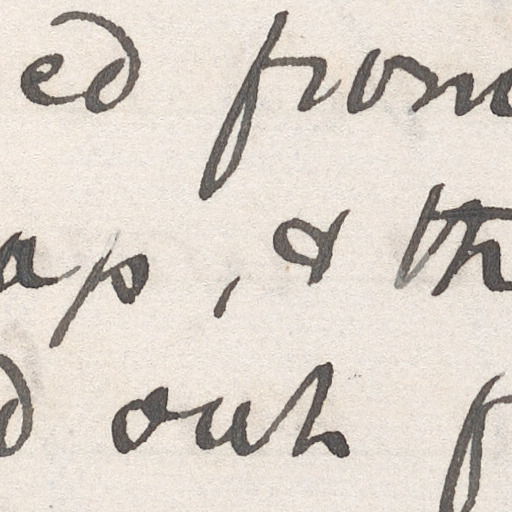 ed from
ap, & th
d out f